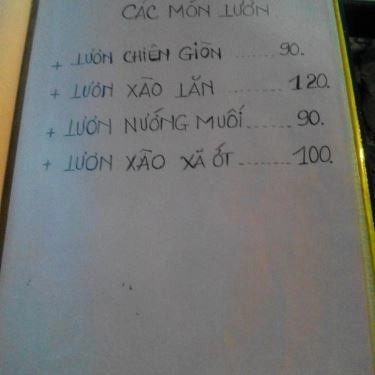 CÁC MÓN LƯƠN
+ LƯƠN CHIÊN GIÒN ...... 90.
+ LƯƠN XÀO LĂN ........ 120.
+ LƯƠN NƯỚNG MUỐI ...... 90.
+ LƯƠN XÀO XÃ ỚT ....... 100.